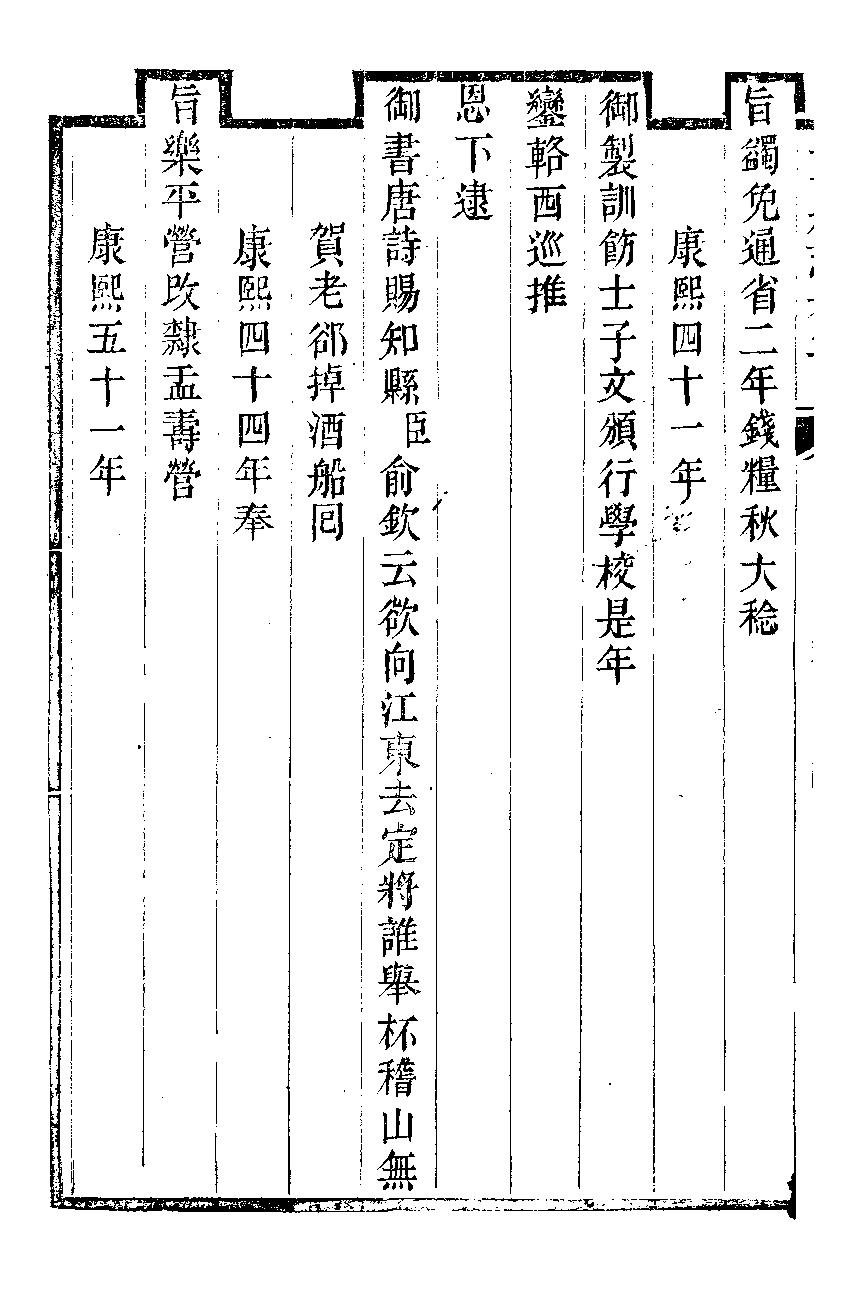 旨蠲免通省二年錢糧秋大稔
康熙四十一年
御製訓飭士子文頒行學校是年
鑾輅西巡推
恩下逮
御書唐詩賜知縣臣俞欽云欲向江東去定將誰舉杯稽山無
賀老郤掉酒船囘
康熙四十四年奉
旨樂平營改隸盂壽營
康熙五十一年